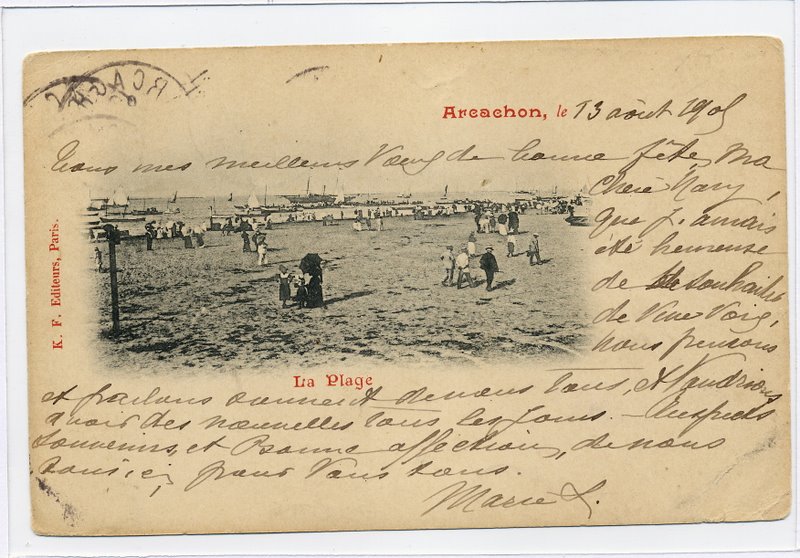 ARCACHON
Arcachon, le 13 août 1905
Tous mes meilleurs Vœux de bonne fête, Ma
chère Mary,
que j'aurais
été heureuse
de te souhaiter
de Vive Voix,
nous pensons
K. F. Editeurs, Paris.
La Plage
et parlons souvent de vous tous, et Voudrions
avoir des nouvelles tous les jours. –
Souvenirs, et Bonne affection, de nous
tous ici, pour Vous tous.
Marie L.